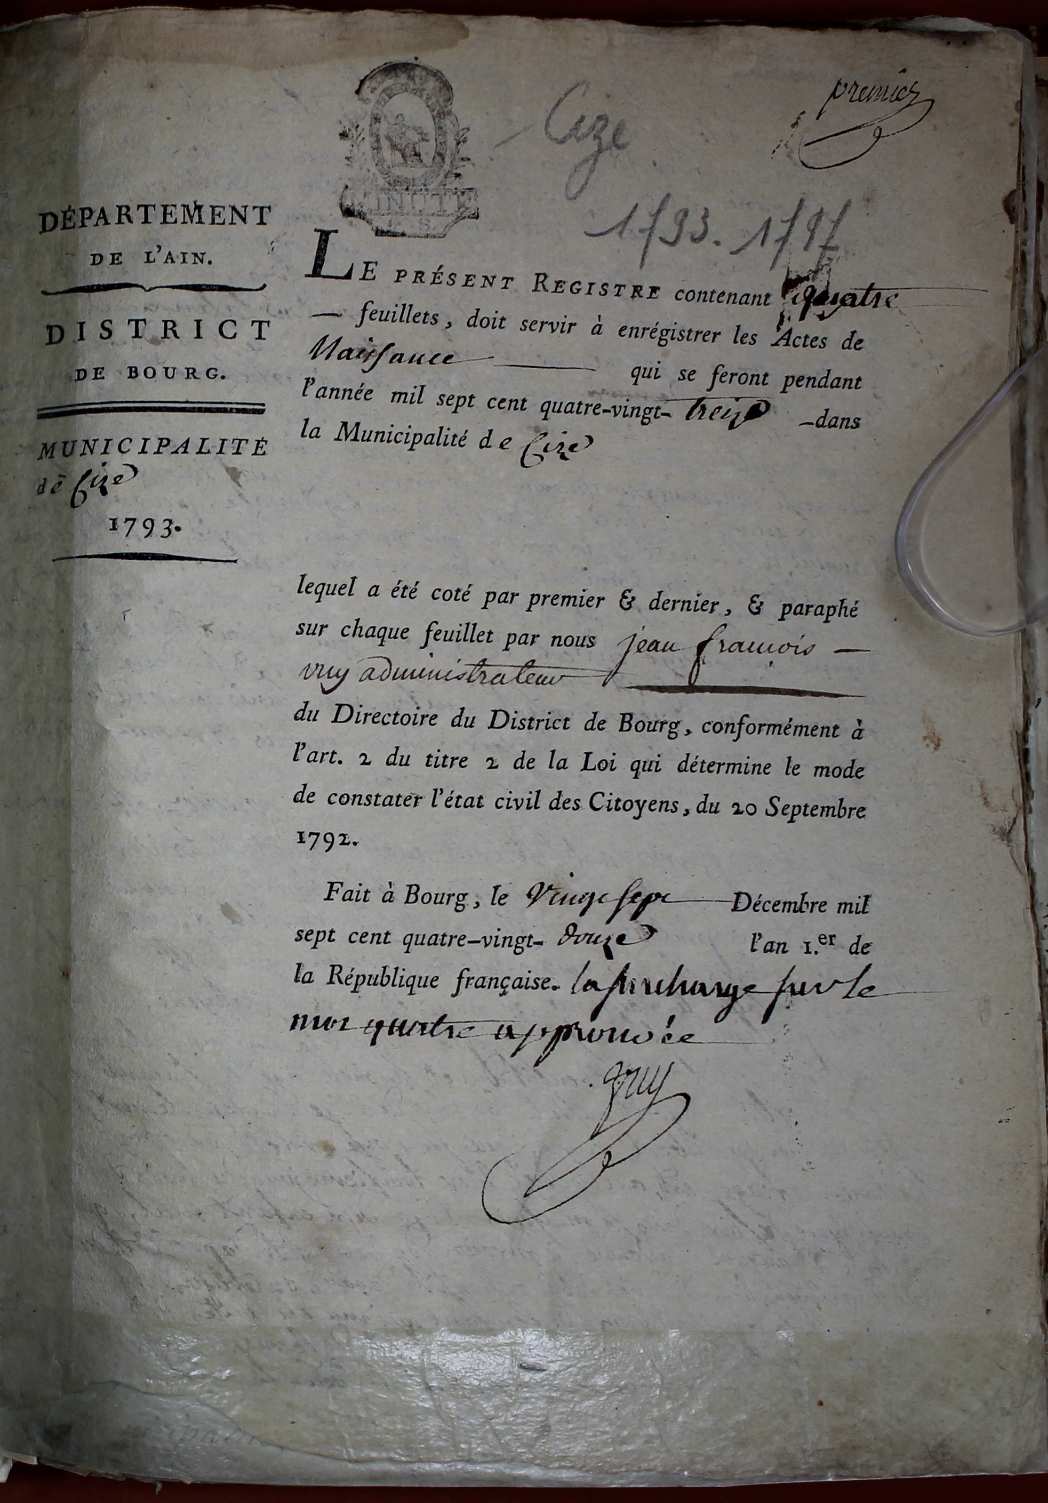 premier
Cize
1793. 1797
MINUTE
DÉPARTEMENT
DE L'AIN.
DISTRICT
DE BOURG.
MUNICIPALITÉ
de Cize
1793.
LE PRÉSENT REGISTRE contenant quatre
— feuillets, doit servir à enrégistrer les Actes de
Naissance — qui se feront pendant
l'année mil sept cent quatre-vingt-treize —dans
la Municipalité de Cize
lequel a été coté par premier & dernier, & paraphé
sur chaque feuillet par nous jean françois —
vuy administrateur
du Directoire du District de Bourg, conformément à
l'art. 2 du titre 2 de la Loi qui détermine le mode
de constater l'état civil des Citoyens, du 20 Septembre
1792.
Fait à Bourg, le Vingt sept Décembre mil
sept cent quatre-vingt-douze l'an 1.er de
la République française. la surcharge sur le
mot quatre approuvée